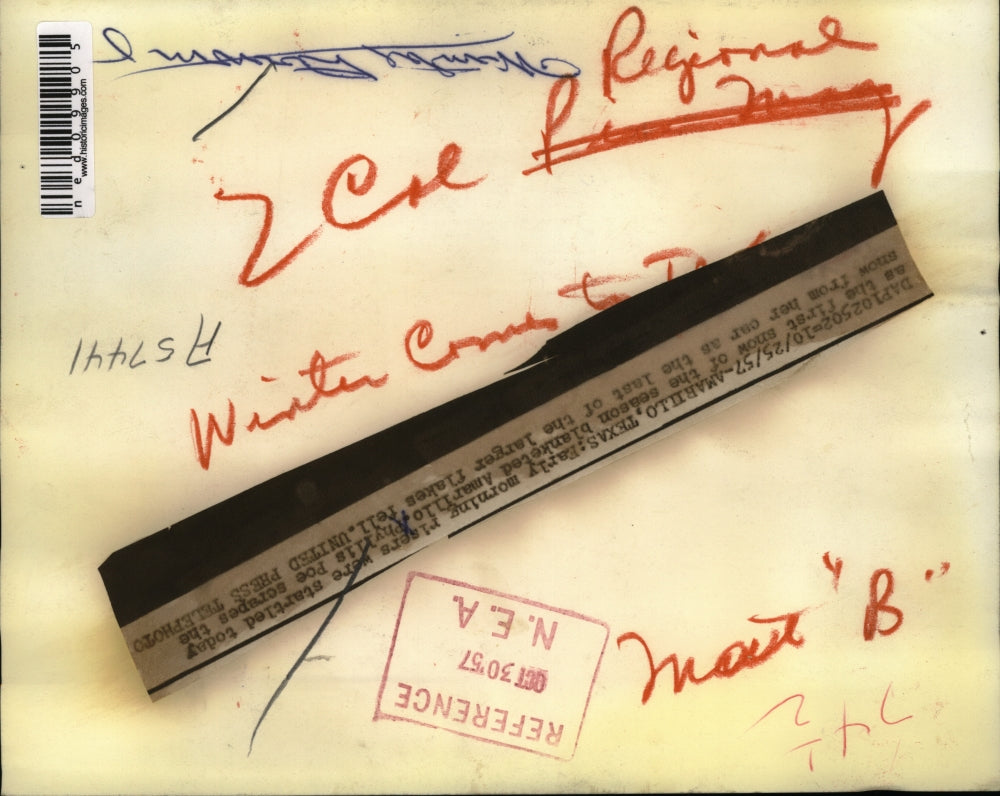 Regional
2 Col
Winter Comes to
DAP102502=10/25/57-AMARILLO, TEXAS: Early morning risers were startled today
as the first snow of the season blanketed Amarillo. Phyllis Poe scrapes the
snow from her car as the last of the larger flakes fell. UNITED PRESS TELEPHOTO
A57441
N.E.A.
OCT 30 '57
REFERENCE
"B"
ned09905
www.historicimages.com